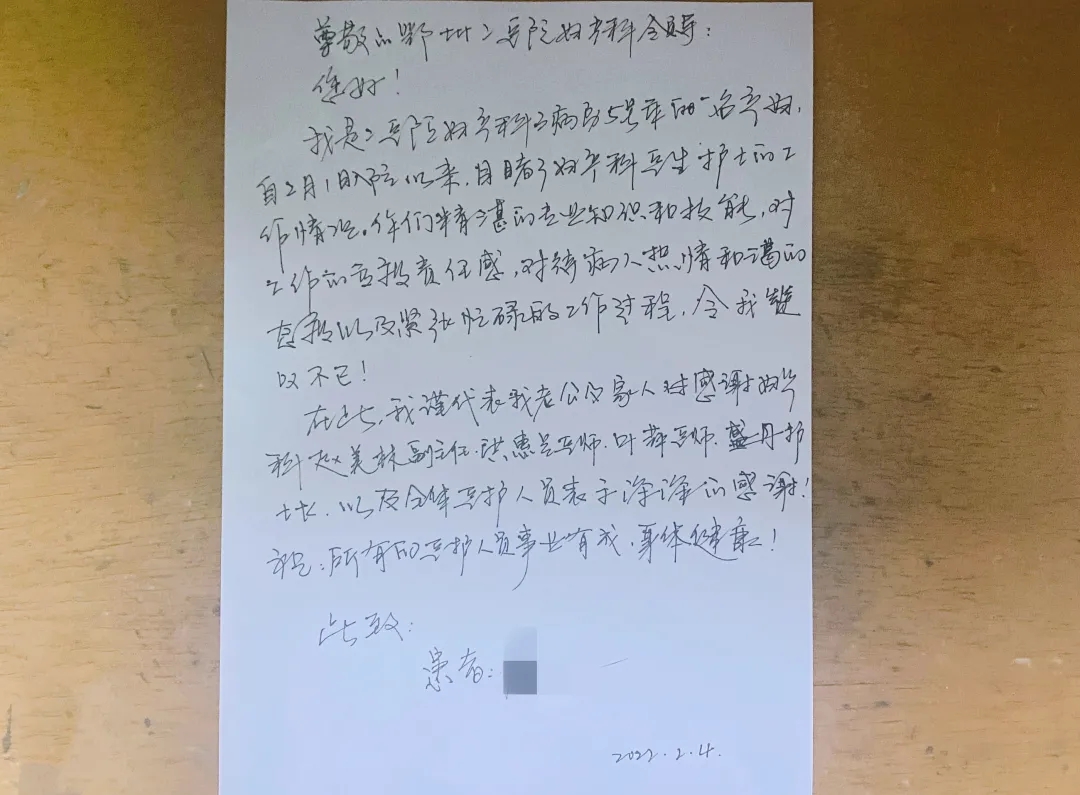 尊敬的鄂州二医院妇产科全体领导：
您好！
我是二医院妇产科病房5号床的一名产妇，
自2月1日入院以来，目睹了妇产科医生护士的工
作情况。你们精湛的专业知识和技能，对
工作的高度责任感，对待病人热情和蔼的
态度以及紧张忙碌的工作过程，令我赞
叹不已！
在此，我谨代表我老公及家人对感谢妇产
科赵美林副主任、洪惠医师、叶萍医师、盛丹护
士长，以及全体医护人员表示深深的感谢！
祝：所有的医护人员事业有成，身体健康！
此致：
患者：
2022.2.4.